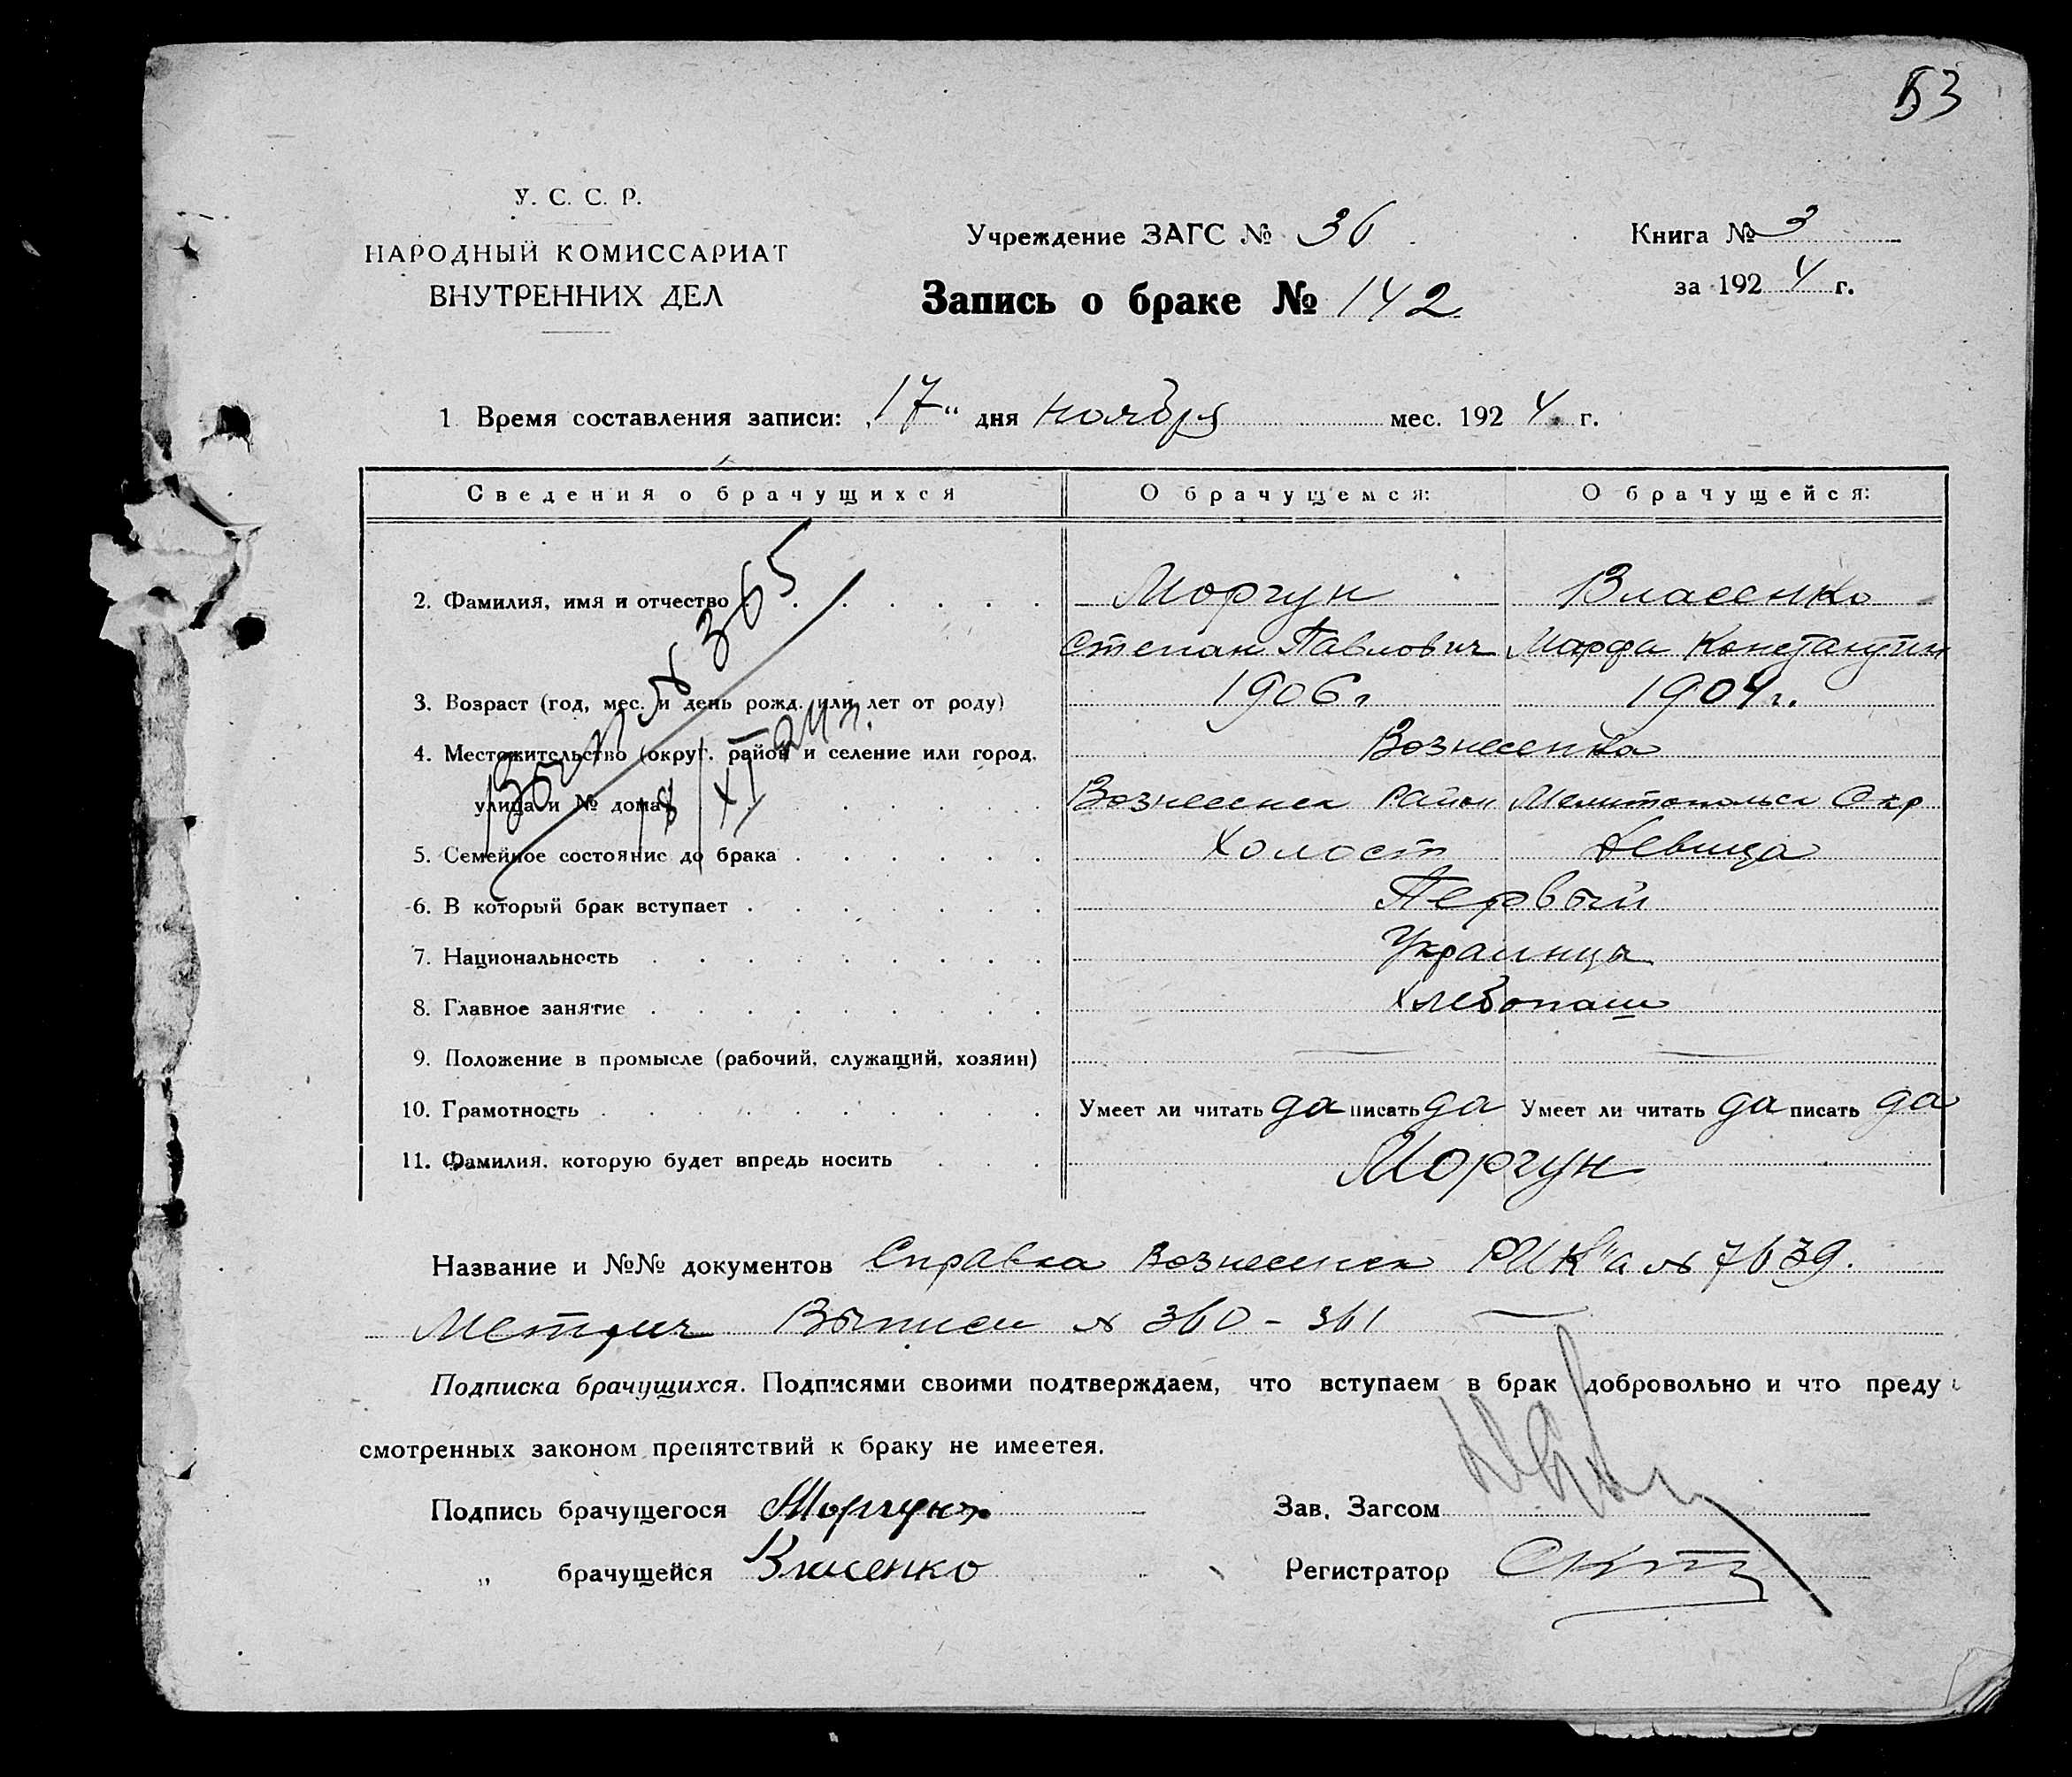 53
У. С. С. Р.
НАРОДНЫЙ КОМИССАРИАТ
ВНУТРЕННИХ ДЕЛ
Учреждение ЗАГС № 36
Книга № 3
Запись о браке № 142
за 1924 г.
1 Время составления записи: „17“ дня ноября мес. 1924 г.
Сведения о брачущихся О брачущемся: О брачущейся:
2. Фамилия, имя и отчество Моргун Власенко
Степан Павлович Марфа Константин
3. Возраст (год, мес. и день рожд. или лет от роду) 1906 г 1904 г.
4. Местожительство (округ. район и селение или город. Вознесенка
улица и № дома Вознесенск район Мелитопольск Окр
5. Семейное состояние до брака Холост Девица
6. В который брак вступает Первый
7. Национальность Украинцы
8. Главное занятие Хлебопаш
9. Положение в промысле (рабочий, служащий, хозяин) — —
10. Грамотность Умеет ли читать да писать да Умеет ли читать да писать да
11. Фамилия, которую будет впредь носить Моргун
№ 365
18/XI
Название и №№ документов Справка Вознесенск РИК"а № 7639.
Метрич Выписи № 360 - 361 —
Подписка брачущихся. Подписями своими подтверждаем, что вступаем в брак добровольно и что преду
смотренных законом препятствий к браку не имеетея.
Подпись брачущегося Моргунъ Зав. Загсом
„ брачущейся Власенко Регистратор